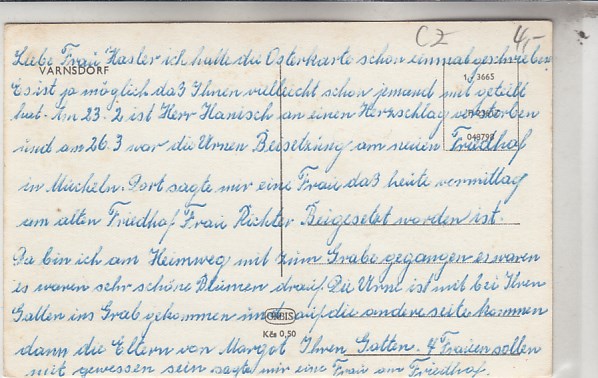 CZ 4,-
Liebe Frau Hasler ich hatte die Osterkarte schon einmal geschrieben
VARNSDORF
1 3665
Es ist ja möglich daß Ihnen vielleicht schon jemand mit geteilt
hat. Am 23.2 ist Herr Hanisch an einen Herzschlag verstorben
und am 26.3 war die Urnen Beisetzung am neuen Friedhof
048798
in Mücheln. Dort sagte mir eine Frau daß heute vormittag
am alten Friedhof Frau Richter Beigesetzt worden ist.
Da bin ich am Heimweg mit zum Grabe gegangen es waren
es waren sehr schöne Blumen drauf. Die Urne ist mit bei Ihren
Gatten ins Grab gekommen und auf die andere seite kommen
ORBIS
Kčs 0,50
dann die Eltern von Margot Ihren Gatten. 4 Frauen sollen
mit gewessen sein sagte mir eine Frau am Friedhof.